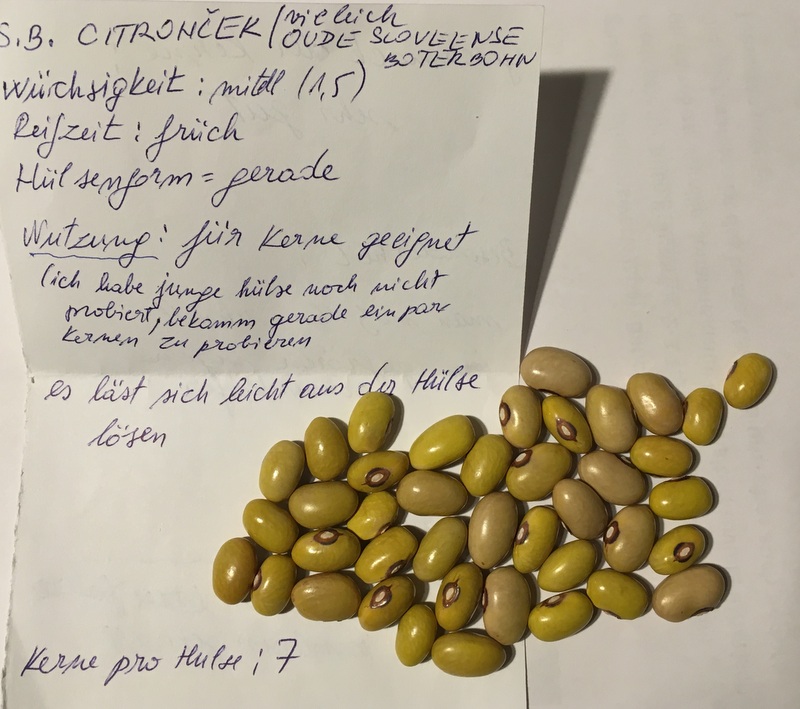 S.B. CITRONČEK / vieleich
OUDE SLOVEENSE
BOTERBOHN
Würchsigkeit : mittl (1,5)
Reifzeit : früch
Hülsenform = gerade
Nutzung : für Kerne geeignet
(ich habe junge hülse noch nicht
probiert, bekamm gerade ein par
Kernen zu probieren
es läst sich leicht aus der Hülse
lösen
Kerne pro Hulse ; 7